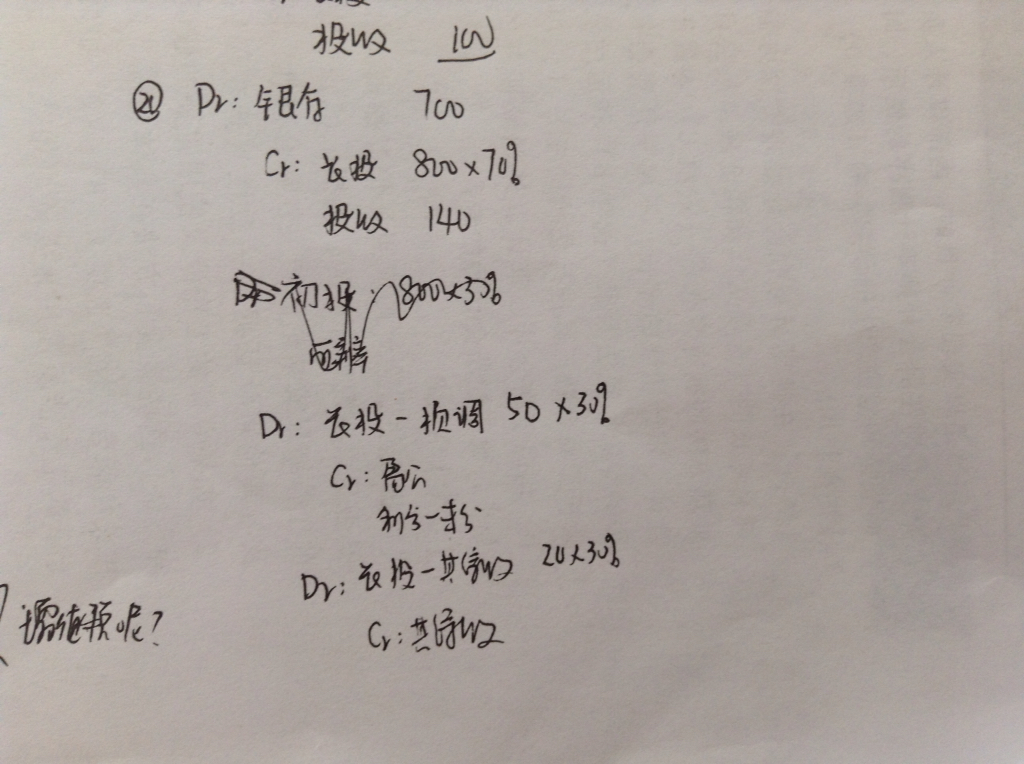 投收 100
② Dr: 银存 700
Cr: 长投 800×70%
投收 140
初投 800×30%
Dr: 长投-损调 50×30%
Cr: 盈公
利分-未分
Dr: 长投-其综收 20×30%
Cr: 其综收
呢?